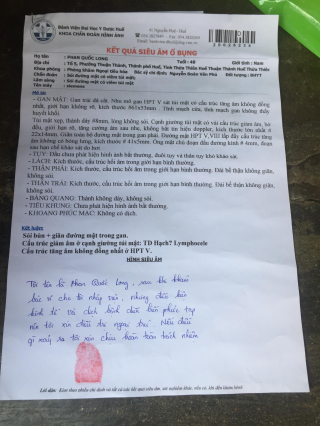 Bệnh Viện Đại Học Y Dược Huế
KHOA CHẨN ĐOÁN HÌNH ẢNH
KẾT QUẢ SIÊU ÂM Ổ BỤNG
Họ tên : PHAN QUỐC LONG Tuổi : 48 Giới tính : Nam
Địa chỉ : Tổ 5, Phường Thuận Thành, Thành phố Huế, Tỉnh Thừa Thiên Huế
Khoa phòng : Phòng khám Ngoại tiêu hóa Bác sỹ chỉ định: Nguyễn Đoàn Văn Phú Đối tượng : BHYT
Chẩn đoán : Sỏi đường mật có viêm túi mật
Lâm sàng : Sỏi đường mật có viêm túi mật
Máy : siemens
Mô tả:
- GAN MẬT: Gan trái đã cắt. Nhu mô gan HPT V sát túi mật có cấu trúc tăng âm không đồng
nhất, giới hạn không rõ, kích thước # 61x53mm. Tĩnh mạch cửa, tĩnh mạch gan không thấy
huyết khối.
Túi mật xẹp, thành dày #8mm, lòng không sỏi. Cạnh giường túi mật có vài cấu trúc giảm âm, bờ
đều, giới hạn rõ, tăng cường âm sau nhẹ, không bắt tín hiệu doppler, kích thước lớn nhất #
22x14mm. Giãn toàn bộ đường mật trong gan phải. Đường mật HPT V,VIII lấp đầy cấu trúc tăng
âm không có bóng lưng, kích thước # 43x9mm. Ống mật chủ đoạn đầu đường kính # 4mm, đoạn
sau hạn chế khảo sát do hơi.
- TỤY: Đầu chưa phát hiện hình ảnh bất thường, đuôi tụy và thân tụy khó khảo sát.
- LÁCH: Kích thước, cấu trúc hồi âm trong giới hạn bình thường.
- THẬN PHẢI: Kích thước, cấu trúc hồi âm trong giới hạn bình thường. Đài bể thận không giãn,
không sỏi.
- THẬN TRÁI: Kích thước, cấu trúc hồi âm trong giới hạn bình thường. Đài bể thận không giãn,
không sỏi.
- BÀNG QUANG: Thành không dày, không sỏi.
- TIỂU KHUNG: Chưa phát hiện hình ảnh bất thường.
- KHOANG PHÚC MẠC: Không có dịch.
Kết luận:
Sỏi bùn + giãn đường mật trong gan.
Cấu trúc giảm âm ở cạnh giường túi mật: TD Hạch? Lymphocele
Cấu trúc tăng âm không đồng nhất ở HPT V.
HÌNH SIÊU ÂM
Tôi tên là Phan Quốc Long, sau khi khám
bác sĩ cho tôi nhập viện, nhưng điều kiện
kinh tế và dịch bệnh diễn biến phức tạp
nên tôi xin điều trị ngoại trú. Nếu điều
gì xảy ra tôi xin chịu hoàn toàn trách nhiệm